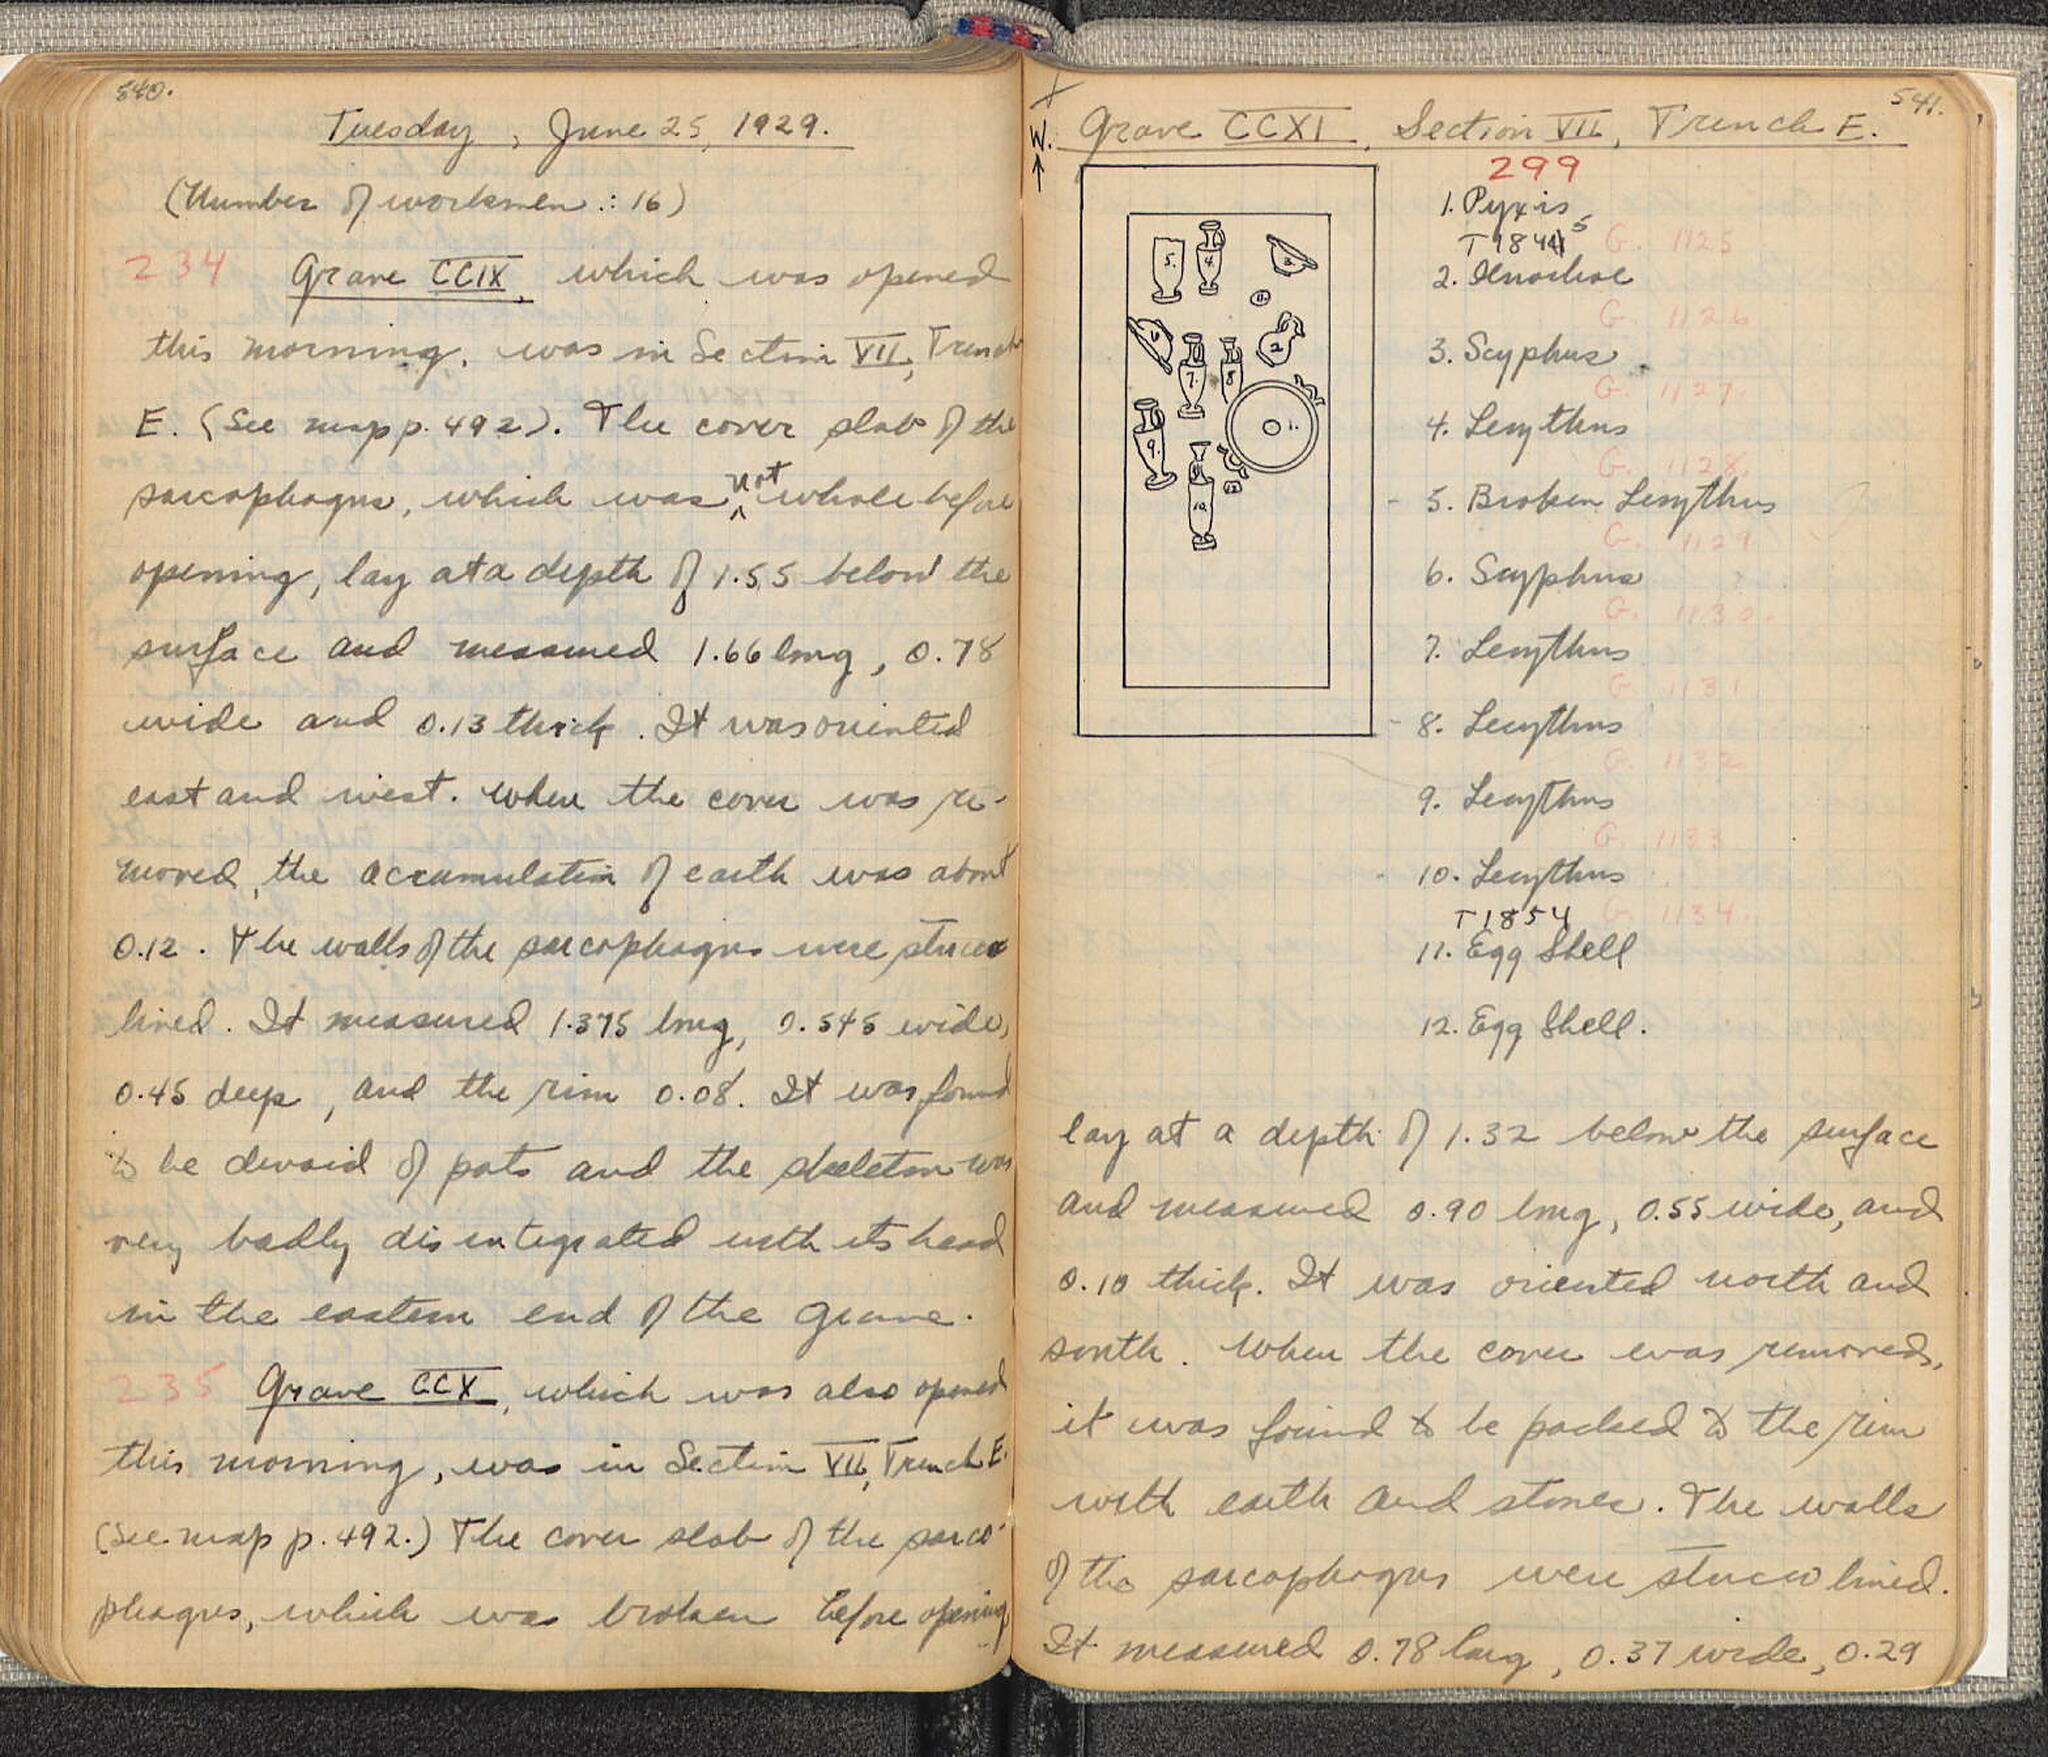 540.
Tuesday, June 25, 1929.
(Number of workmen : 16)
234 Grave CCIX, which was opened
this morning, was in Section VII, Trench
E. (See map p. 492). The cover slab of the
sarcophagus, which was not whole before
opening, lay at a depth of 1.55 below the
surface and measured 1.66 long, 0.78
wide and 0.13 thick. It was oriented
east and west. When the cover was re-
moved, the accumulation of earth was about
0.12. The walls of the sarcophagus were stucco
lined. It measured 1.375 long, 0.545 wide,
0.45 deep, and the rim 0.08. It was found
to be devoid of pots and the skeleton was
very badly disintegrated with its head
in the eastern end of the grave.
235 Grave CCX, which was also opened
this morning, was in Section VII, Trench E.
(See map p. 492.) The cover slab of the sarco-
phagus, which was broken before opening
541.
W. Grave CCXI, Section VII, Trench E.
299
1. Pyxis
T 1845 G. 1125
2. Oenochoe
G. 1126
3. Scyphus
G. 1127
4. Lecythus
G. 1128
5. Broken Lecythus
G. 1129
6. Scyphus
G. 1130.
7. Lecythus
G. 1131
8. Lecythus
G. 1132
9. Lecythus
G. 1133
10. Lecythus
T 1854 G. 1134.
11. Egg Shell
12. Egg Shell.
5. 4. 3.
11.
6. 2.
7. 8.
1.
9.
10. 12
lay at a depth of 1.32 below the surface
and measured 0.90 long, 0.55 wide, and
0.10 thick. It was oriented north and
south. When the cover was removed,
it was found to be packed to the rim
with earth and stones. The walls
of the sarcophagus were stucco lined.
It measured 0.78 long, 0.37 wide, 0.29